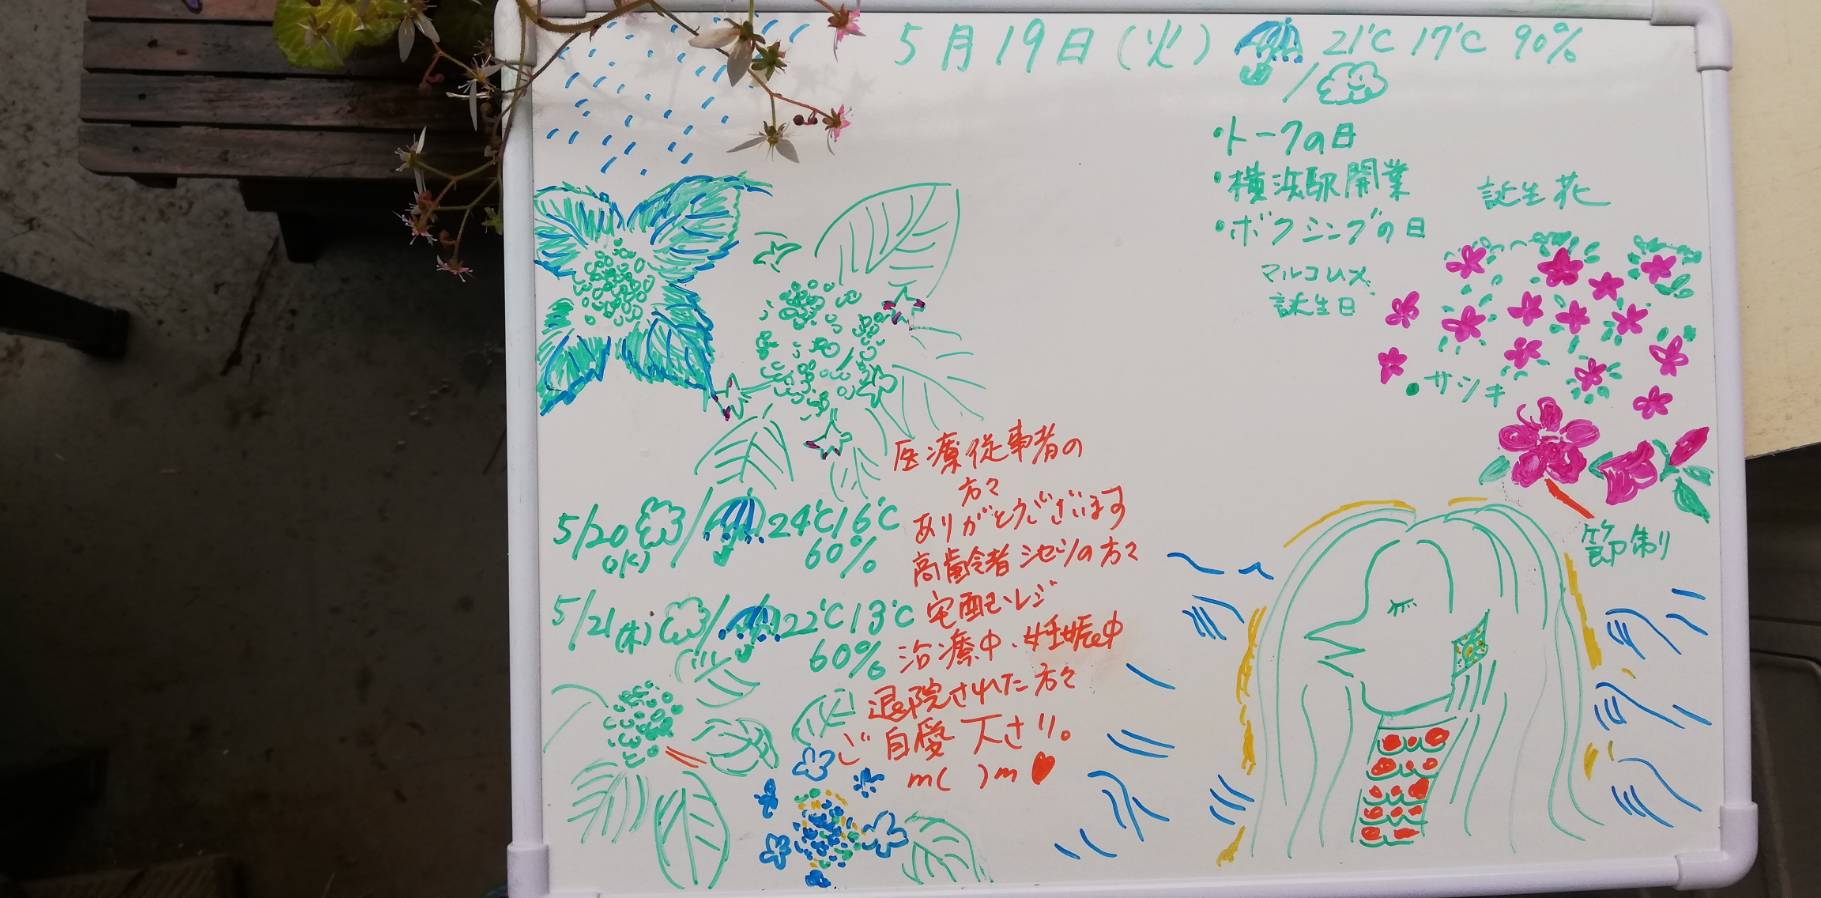 5月19日(火) 21℃ 17℃ 90%
/
・トークの日
・横浜駅開業
・ボクシングの日
マルコムX
誕生日
誕生花
・サツキ
節制
医療従事者の
方々
ありがとうございます
高齢者シセツの方々
宅配・レジ
治療中、妊娠中
退院された方々
ご自愛下さい。
m( )m♥
5/20 / 24℃ 16℃
(水) 60%
5/21(木) / 22℃ 13℃
60%